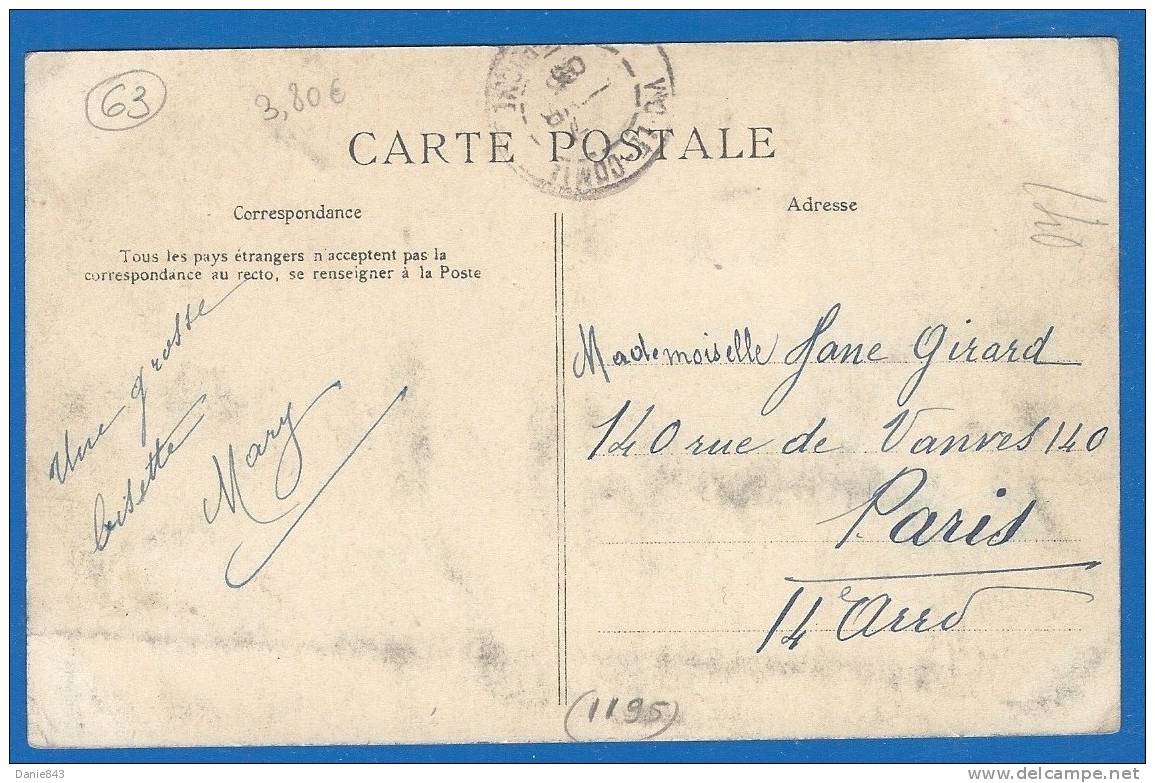 63
3,80€
VIC-LE-COMTE
CARTE POSTALE
Correspondance
Adresse
Tous les pays étrangers n'acceptent pas la
correspondance au recto, se renseigner à la Poste
Une grosse
bisette
Mary
Mademoiselle Jane Girard
140 rue de Vanves 140
Paris
14e Arrd
(1195)
Danie843
http://www.delcampe.net